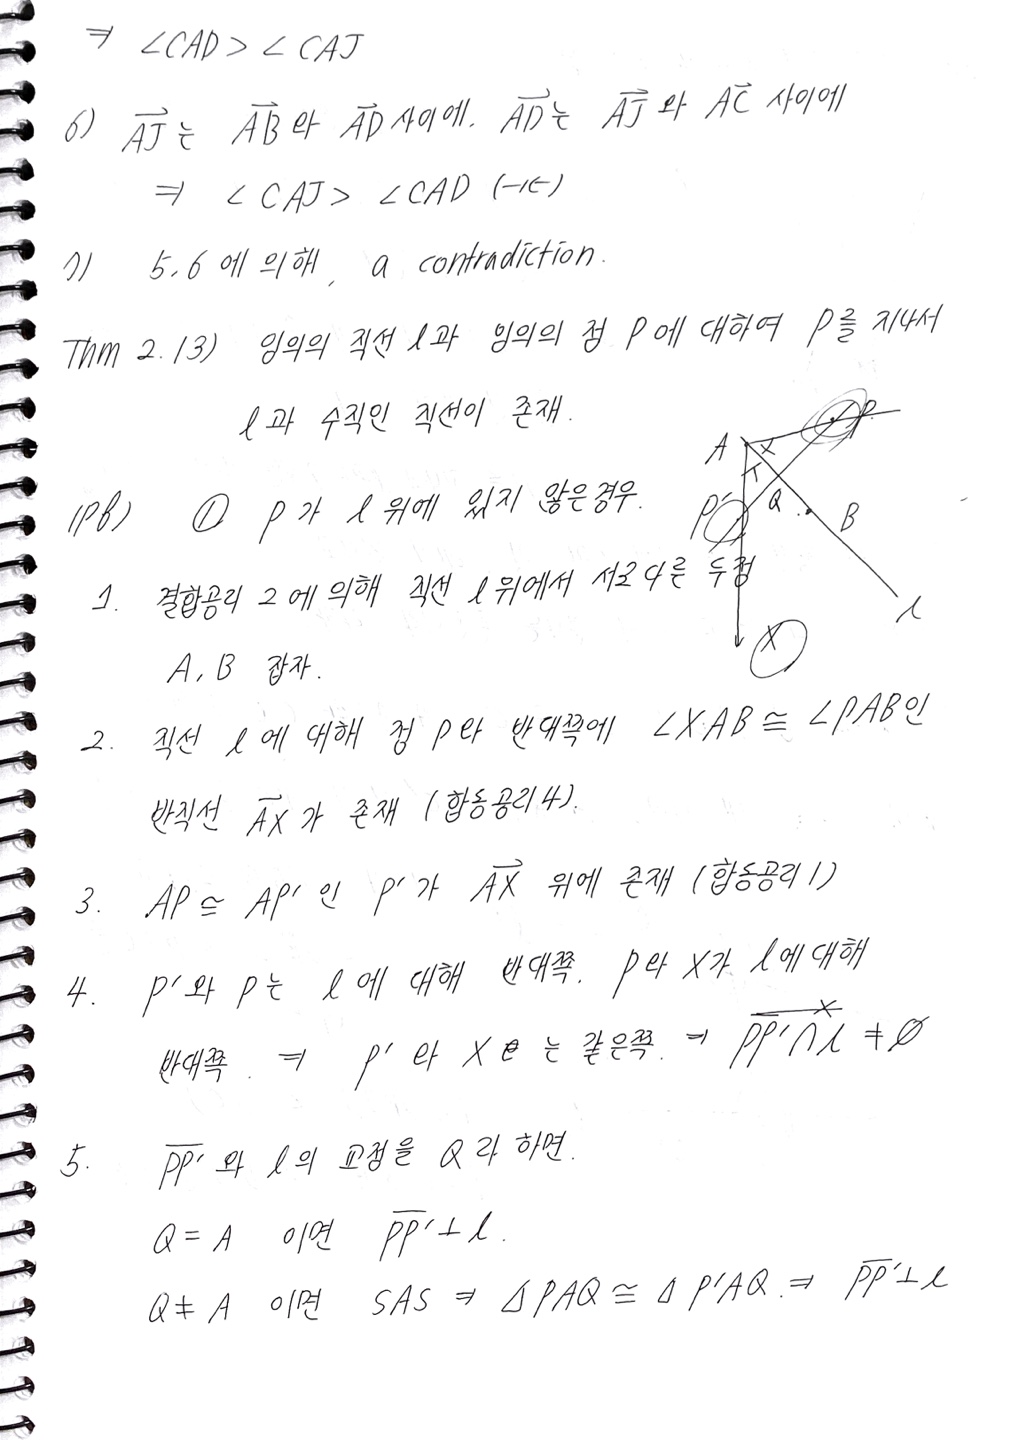 ⇒ ∠CAD > ∠CAJ
6) AJ→는 AB→와 AD→사이에. AD→는 AJ→와 AC→ 사이에
⇒ ∠CAJ > ∠CAD (→←)
7) 5.6에 의해, a contradiction.
Thm 2.13) 임의의 직선 l과 임의의 점 P에 대하여 P를 지나서
l과 수직인 직선이 존재.
(pf) ① P가 l 위에 있지 않은경우.
A P
P' Q B
X l
1. 결합공리 2에 의해 직선 l위에서 서로다른 두점
A, B 잡자.
2. 직선 l에 대해 점 P와 반대쪽에 ∠XAB ≅ ∠PAB인
반직선 AX→가 존재 (합동공리4).
3. AP ≅ AP' 인 P'가 AX→ 위에 존재 (합동공리1)
4. P'와 P는 l에 대해 반대쪽. P와 X가 l에 대해
반대쪽. ⇒ P'와 X는 같은쪽. ⇒ P̅P̅'∩l ≠ ∅
5. P̅P̅'와 l의 교점을 Q라 하면.
Q = A 이면 P̅P̅'⊥l.
Q ≠ A 이면 SAS ⇒ △PAQ ≅ △P'AQ. ⇒ P̅P̅'⊥l